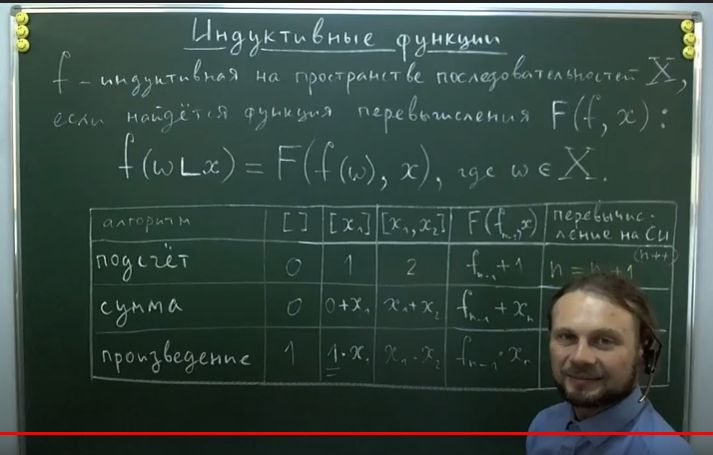 Индуктивные функции
f – индуктивная на пространстве последовательностей X,
если найдётся функция перевычисления F(f, x):
f(ω⌊x) = F(f(ω), x), где ω ∈ X.
алгоритм [ ] [x₁] [x₁,x₂] F(fₙ₋₁,x) перевычис-
ление на Си
подсчёт 0 1 2 fₙ₋₁+1 n = n+1 (n++)
сумма 0 0+x₁ x₁+x₂ fₙ₋₁+xₙ
произведение 1 1·x₁ x₁·x₂ fₙ₋₁·xₙ